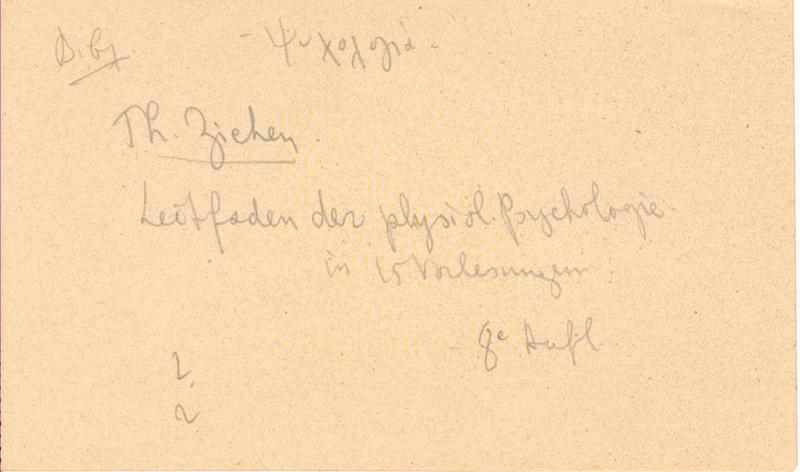 Βιβλ - Ψυχολογία -
Th. Ziehen
Leitfaden der physiol. Psychologie
in 15 Vorlesungen
- 8e Aufl
2
2